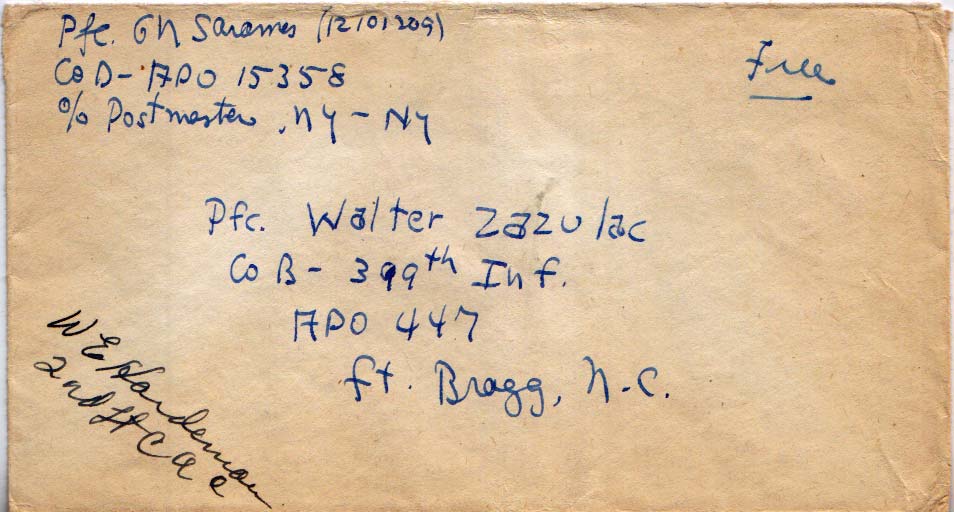 Pfc. GN Sarames (12101209)
Co D - APO 15358
% Postmaster, NY - NY
Free
Pfc. Walter Zazulac
Co B - 399th Inf.
APO 447
Ft. Bragg, N.C.
W E Hardeman
2nd Lt C A C